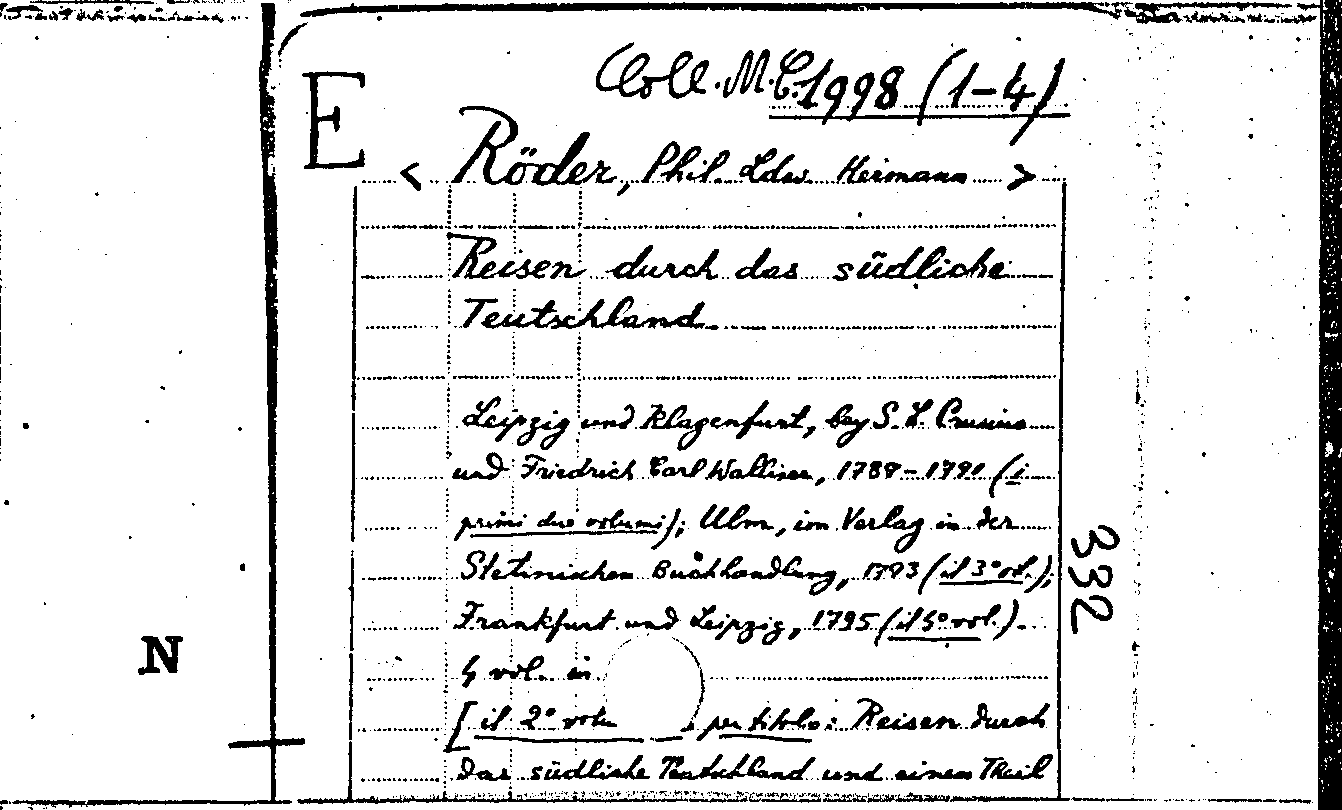 Coll. M.C. 1998 (1-4)
E
< Röder, Phil. Ldw. Hermann >
Reisen durch das südliche
Teutschland.
Leipzig und Klagenfurt, bey S. L. Crusius
und Friedrich Carl Walliser, 1789-1791 (i
primi due volumi); Ulm, im Verlag in der
Stetinischen Buchhandlung, 1793 (il 3° vol.);
Frankfurt und Leipzig, 1795 (il 4° vol.).
4 vol. in
[il 2° volu per titolo: Reisen durch
das südliche Teutschland und einen Theil
332
N